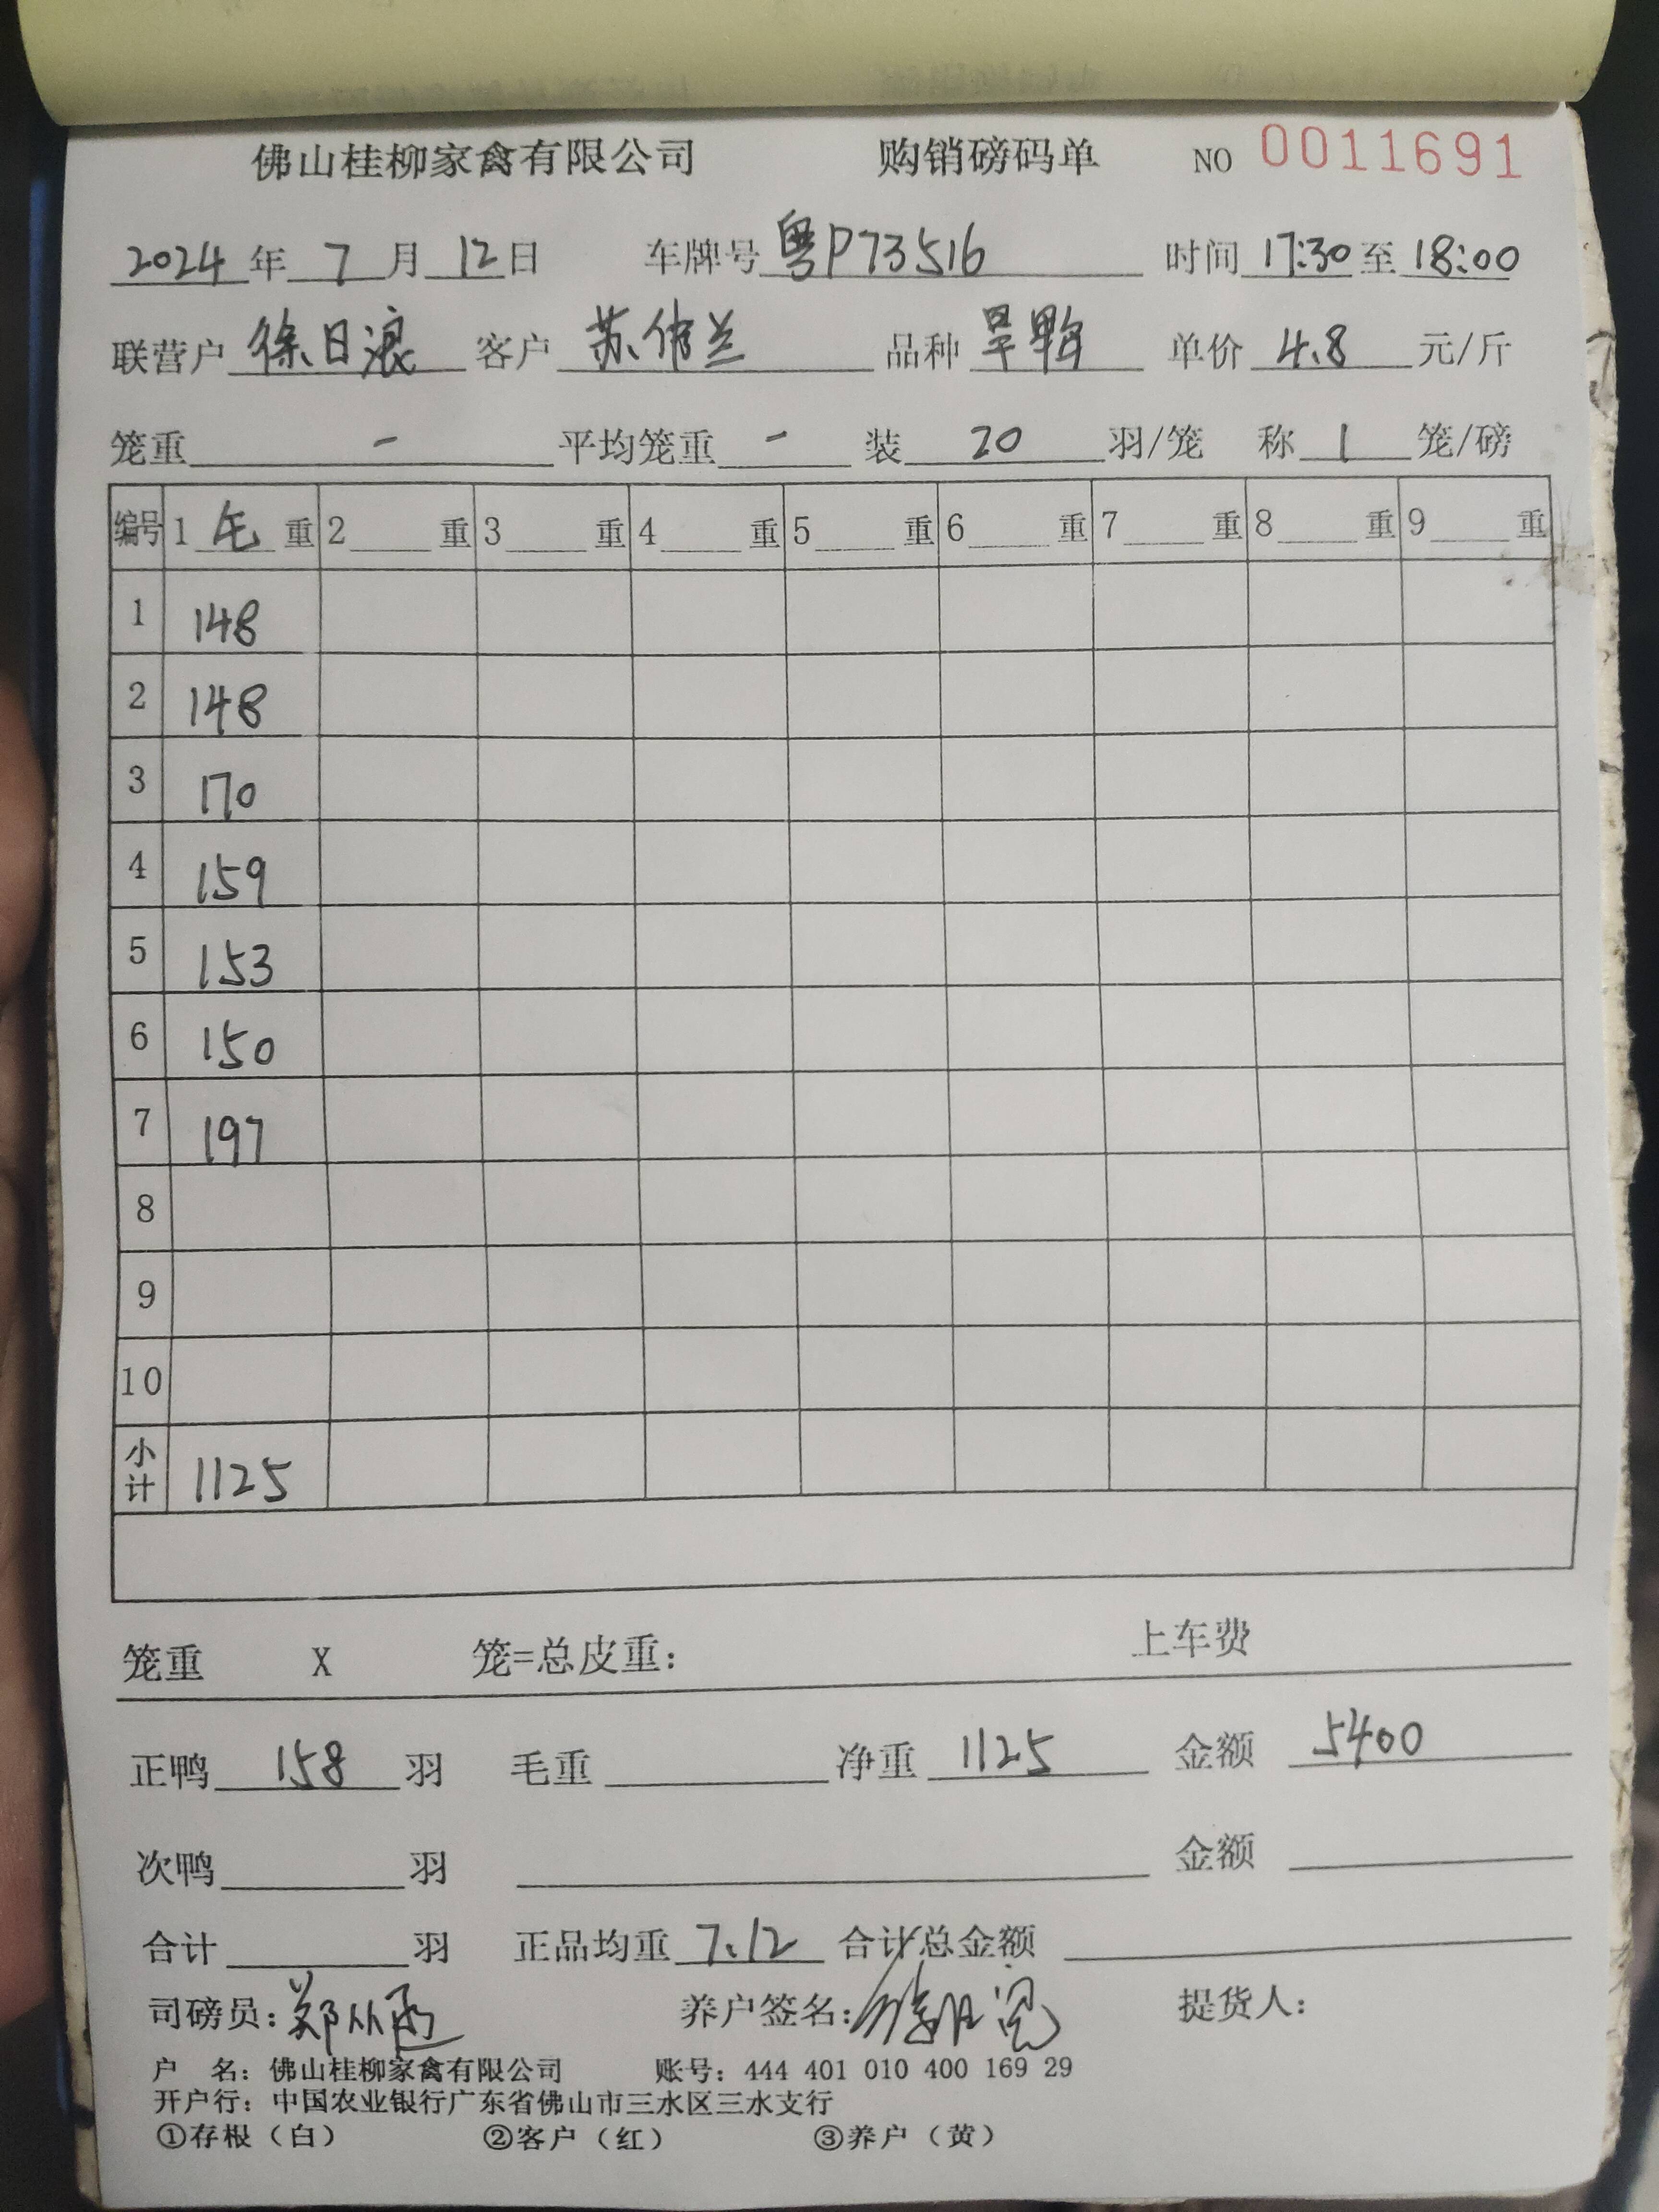 佛山桂柳家禽有限公司 购销磅码单 NO 0011691
2024年7月12日 车牌号粤P73516 时间17:30至18:00
联营户徐日浪 客户苏伟兰 品种旱鸭 单价4.8元/斤
笼重 - 平均笼重 - 装20羽/笼 称1笼/磅
编号 1毛重 2重 3重 4重 5重 6重 7重 8重 9重
1 148
2 148
3 170
4 159
5 153
6 150
7 197
8
9
10
小计 1125
笼重 X 笼=总皮重: 上车费
正鸭158羽 毛重 净重1125 金额5400
次鸭 羽 金额
合计 羽 正品均重7.12 合计总金额
司磅员: 养户签名: 提货人:
户 名: 佛山桂柳家禽有限公司 账号: 444 401 010 400 169 29
开户行: 中国农业银行广东省佛山市三水区三水支行
①存根(白) ②客户(红) ③养户(黄)